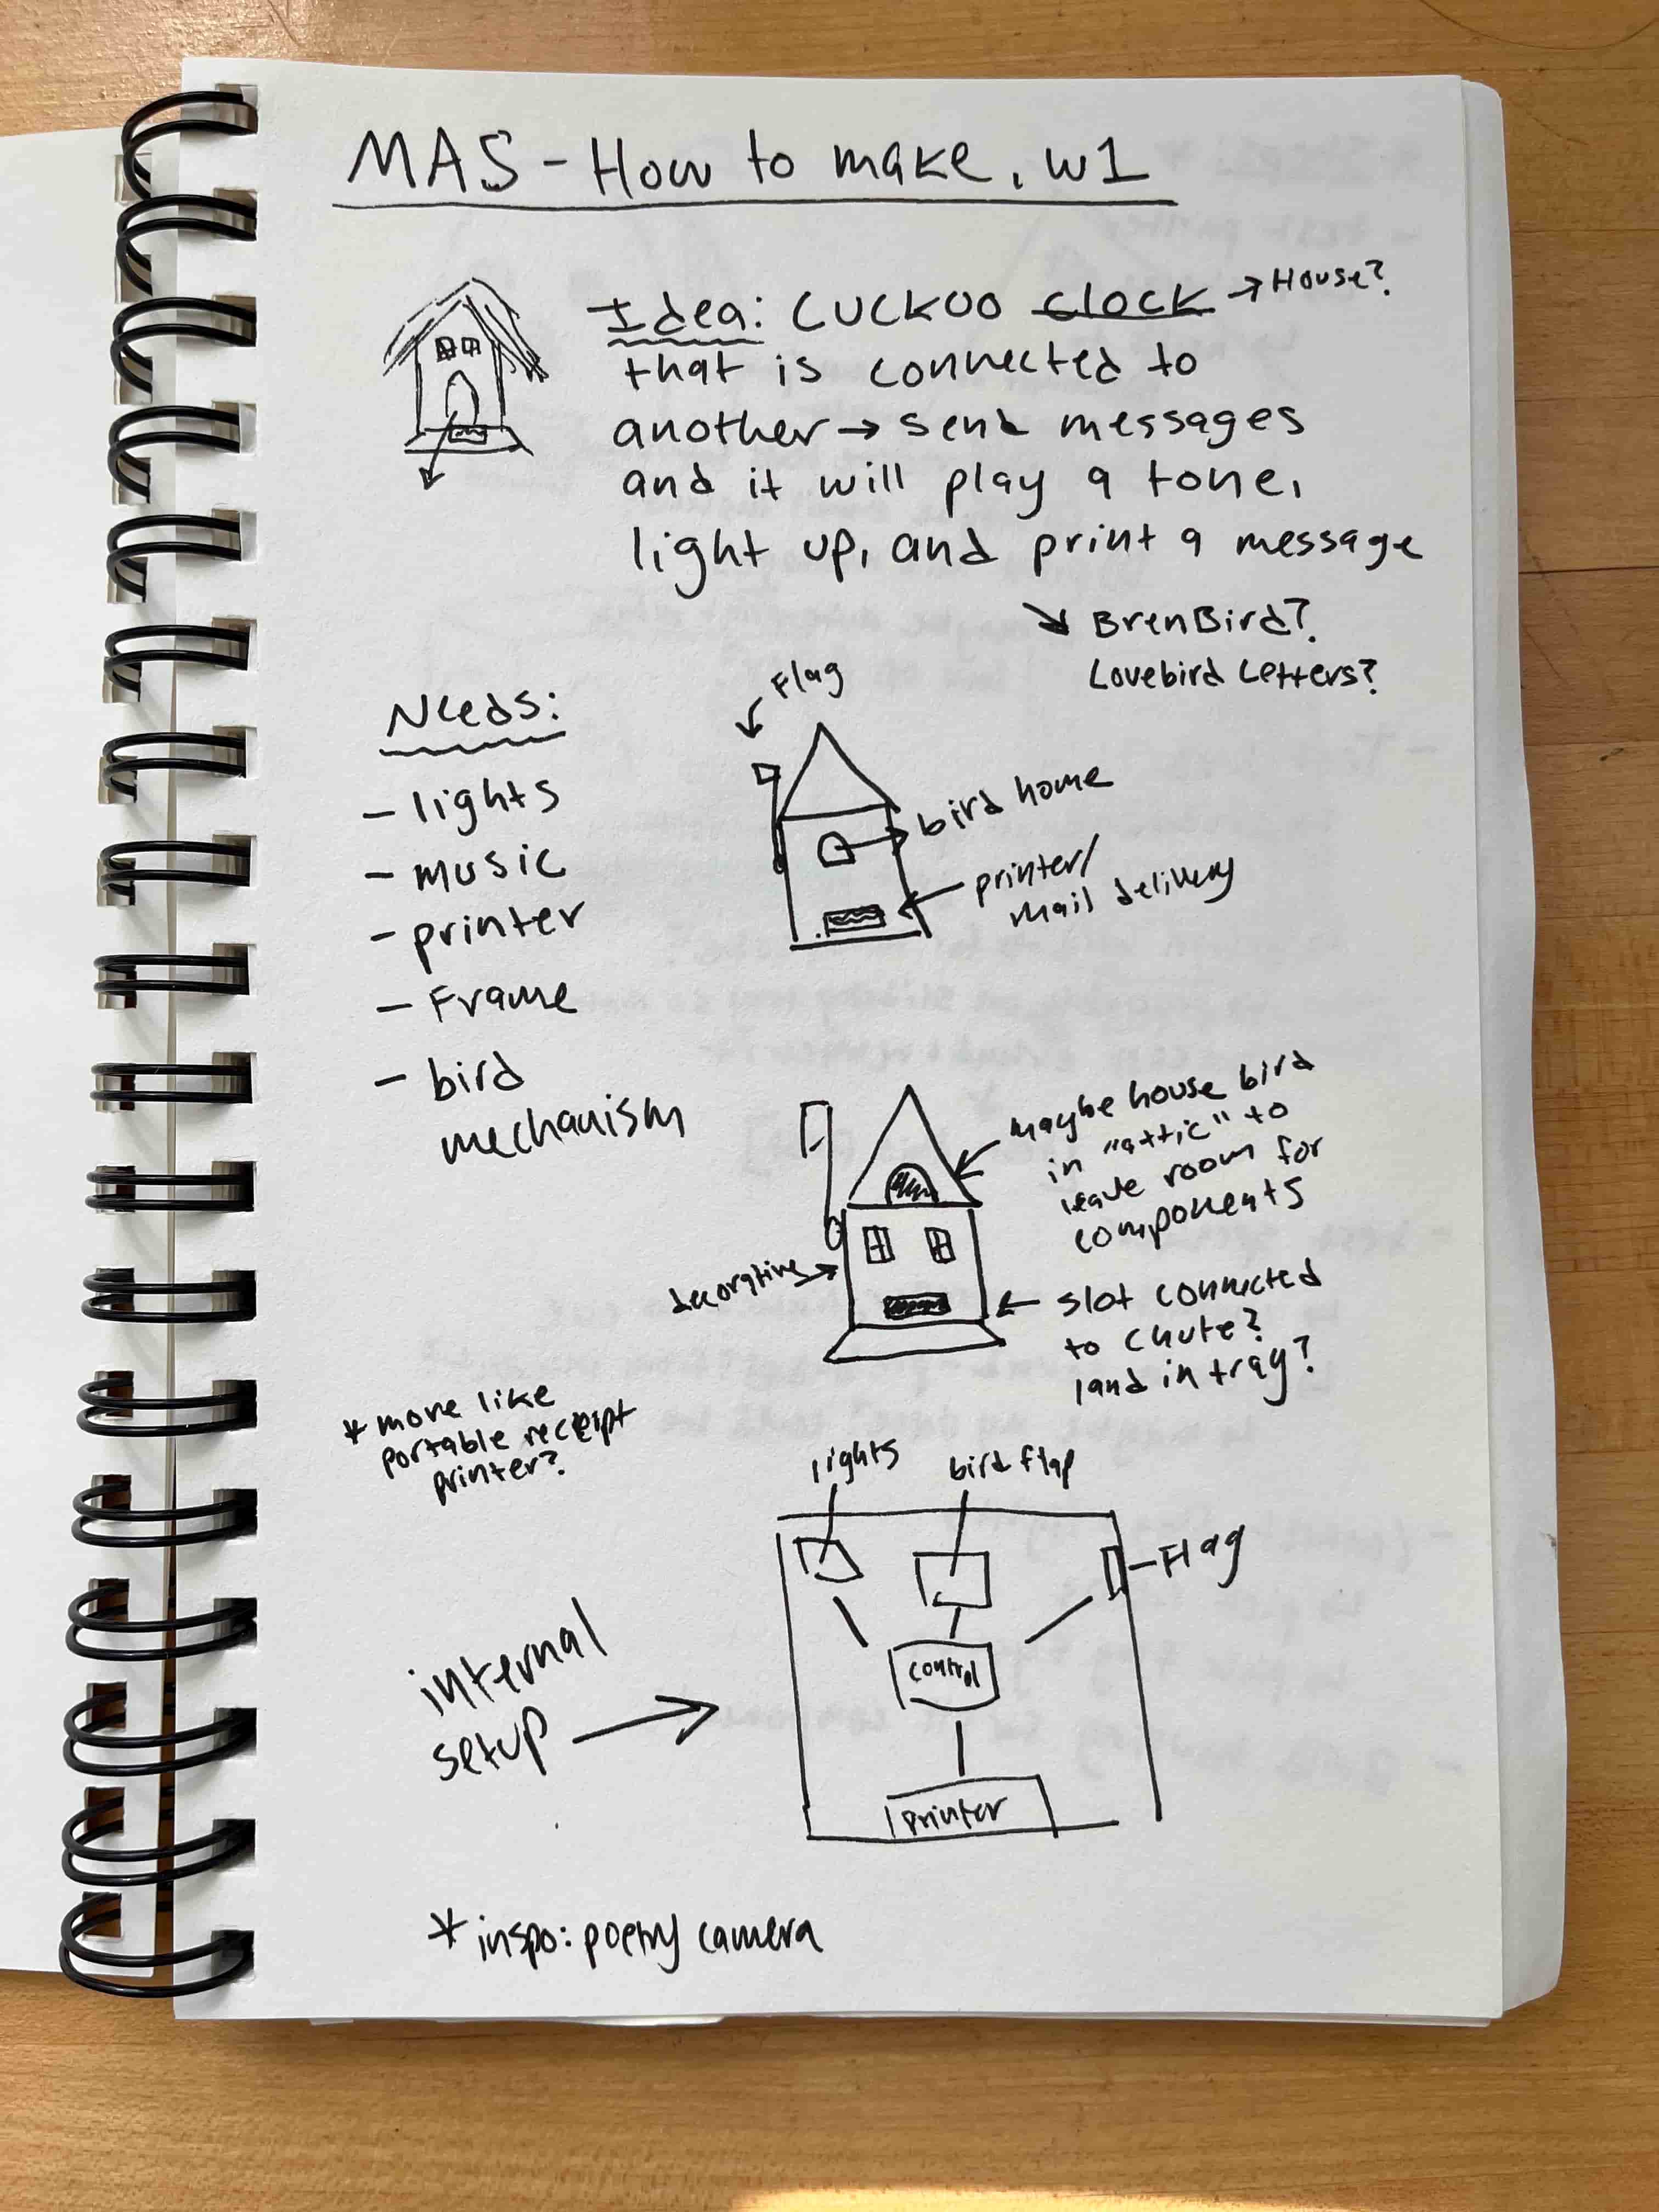 MAS - How to make. w1
Idea: Cuckoo clock → House?
that is connected to
another → send messages
and it will play a tone,
light up, and print a message
BrenBird?
Lovebird Letters?
Flag
Needs:
- lights
- music
- printer
- Frame
- bird
mechanism
bird home
printer/
mail delivery
maybe house bird
in "attic" to
leave room for
components
decorative
slot connected
to chute?
land in tray?
* more like
portable receipt
printer?
lights
bird flap
Flag
control
printer
internal
setup
* inspo: poetry camera